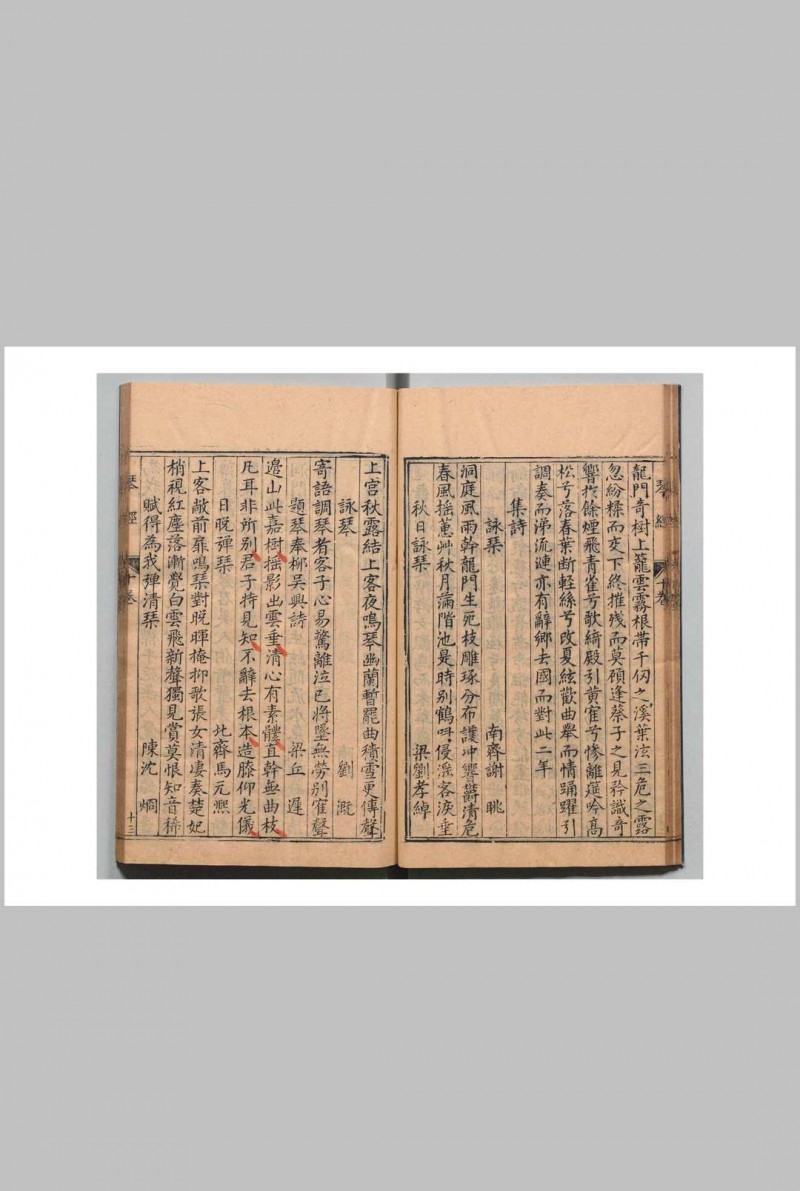 琴經 十卷
龍門奇樹上籠雲霧根帶千仞之溪葉泫三危之露
忽紛糅而交下終摧殘而莫顧逢蔡子之見矜識奇
響於餘煙飛青雀兮歌綺殿引黃寉兮慘離筵吟高
松兮落春葉斷輕絲兮改夏絃歡曲舉而情踊躍引
調奏而涕流漣亦有辭鄉去國而對此二年
集詩
詠琴 南齊謝朓
洞庭風雨幹龍門生死枝雕琢分布護冲響鬱清危
春風摇蕙艸秋月滿階池是時别鶴呌侵淫客淚垂
秋日詠琴 梁劉孝綽
上宫秋露結上客夜鳴琴幽蘭暫罷曲積雪更傳聲
詠琴 劉溉
寄語調琴者客子心易驚離泣已將墜無勞别寉聲
題琴奉柳吴興詩 梁丘遲
邊山此嘉樹摇影出雲垂清心有素體直幹無曲枝
凡耳非所别君子特見知不辭去根本造膝仰光儀
日晚彈琴 北齊馬元熙
上客敞前扉鳴琴對晚暉掩抑歌張女清凄奏楚妃
梢視紅塵落漸覺白雲飛新聲獨見賞莫恨知音稀
賦得為我彈清琴 陳沈烱
琴經 十卷 十三